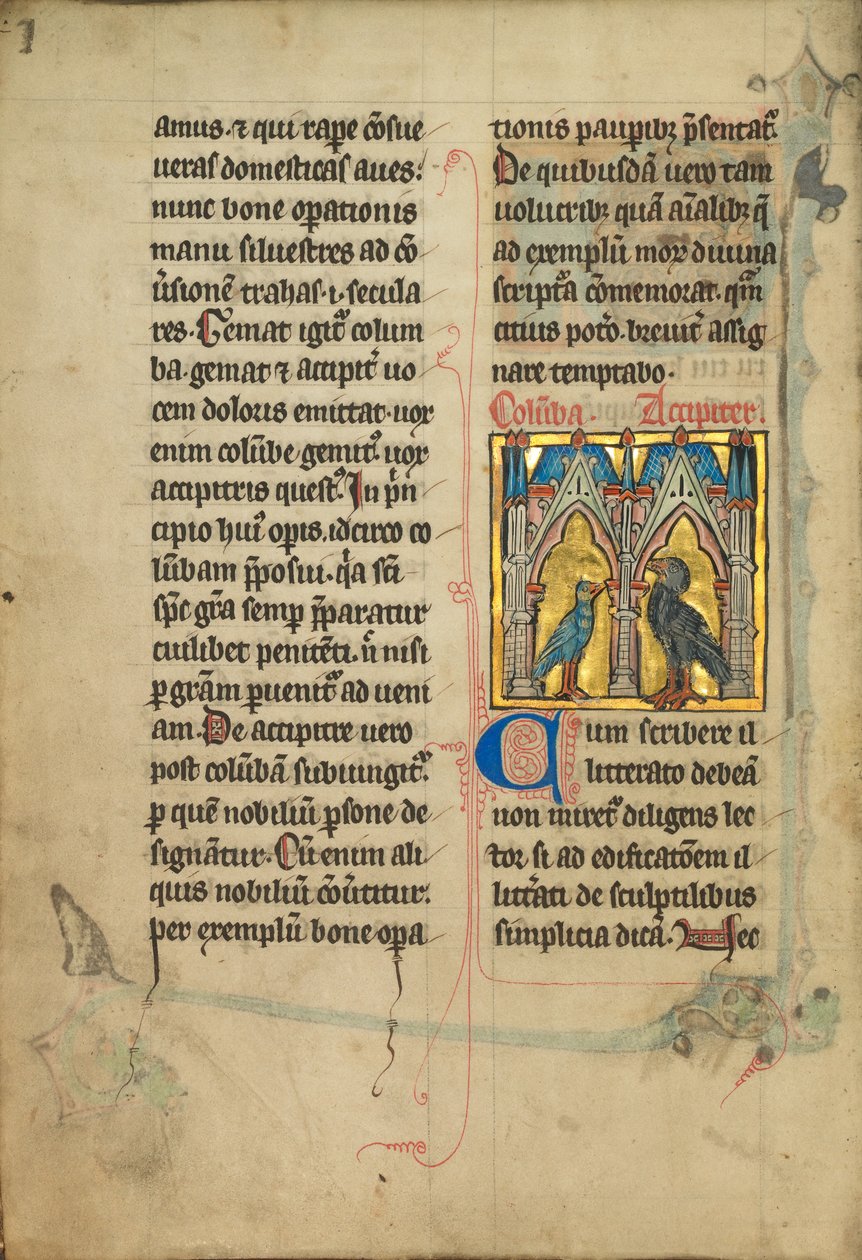 amus. ⁊ qui rape cōsue
ueras domesticas aues.
nunc bone oꝑationis
manu siluestres ad cō
ūsionē trahas .i. secula
res. Gemat igit᷑ colum
ba. gemat ⁊ accipit᷑ uo
cem doloris emittat. uox
enim colūbe gemitꝰ. uox
accipitris questꝰ. In pͥn
cipio huiꝰ oꝑis. idcirco co
lūbam p̄posui. qͥa sc̄i
sp̄c gr̄a semꝑ p̄paratur
cuilibet penitēti. n̄ nisi
ꝑ gr̄am ꝑuenit᷑ ad ueni
am. De accipitre uero
post colūbā subiungit᷑.
ꝑ quē nobiliū ꝑsone de
signātur. Cū enim ali
quis nobiliū cōūtitur.
per exemplū bone oꝑa
tionis pauꝑibꝫ p̄sentat᷑.
De quibusdā uero tam
uolucribꝫ quā aīalibꝫ q̄
ad exemplū moꝝ diuina
scriptᷓa cōmemorat. qm̄
citius potᷓo. breuit᷑ assig
nare temptabo.
Colūba. Accipiter.
Cum scribere il
litterato debeā
non miret᷑ diligens lec
tor si ad edificatōem il
litt᷑ati de sculptilibus
simplicia dicā. Nec